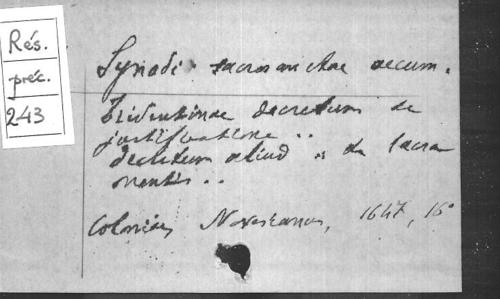 Rés.
préc.
243
Synodi sacrosanctae oecum.
Tridentinae decretum de
justificatione ..
decretum aliud .. de sacra
mentis ..
Coloniae, Novesianus, 1647, 16°